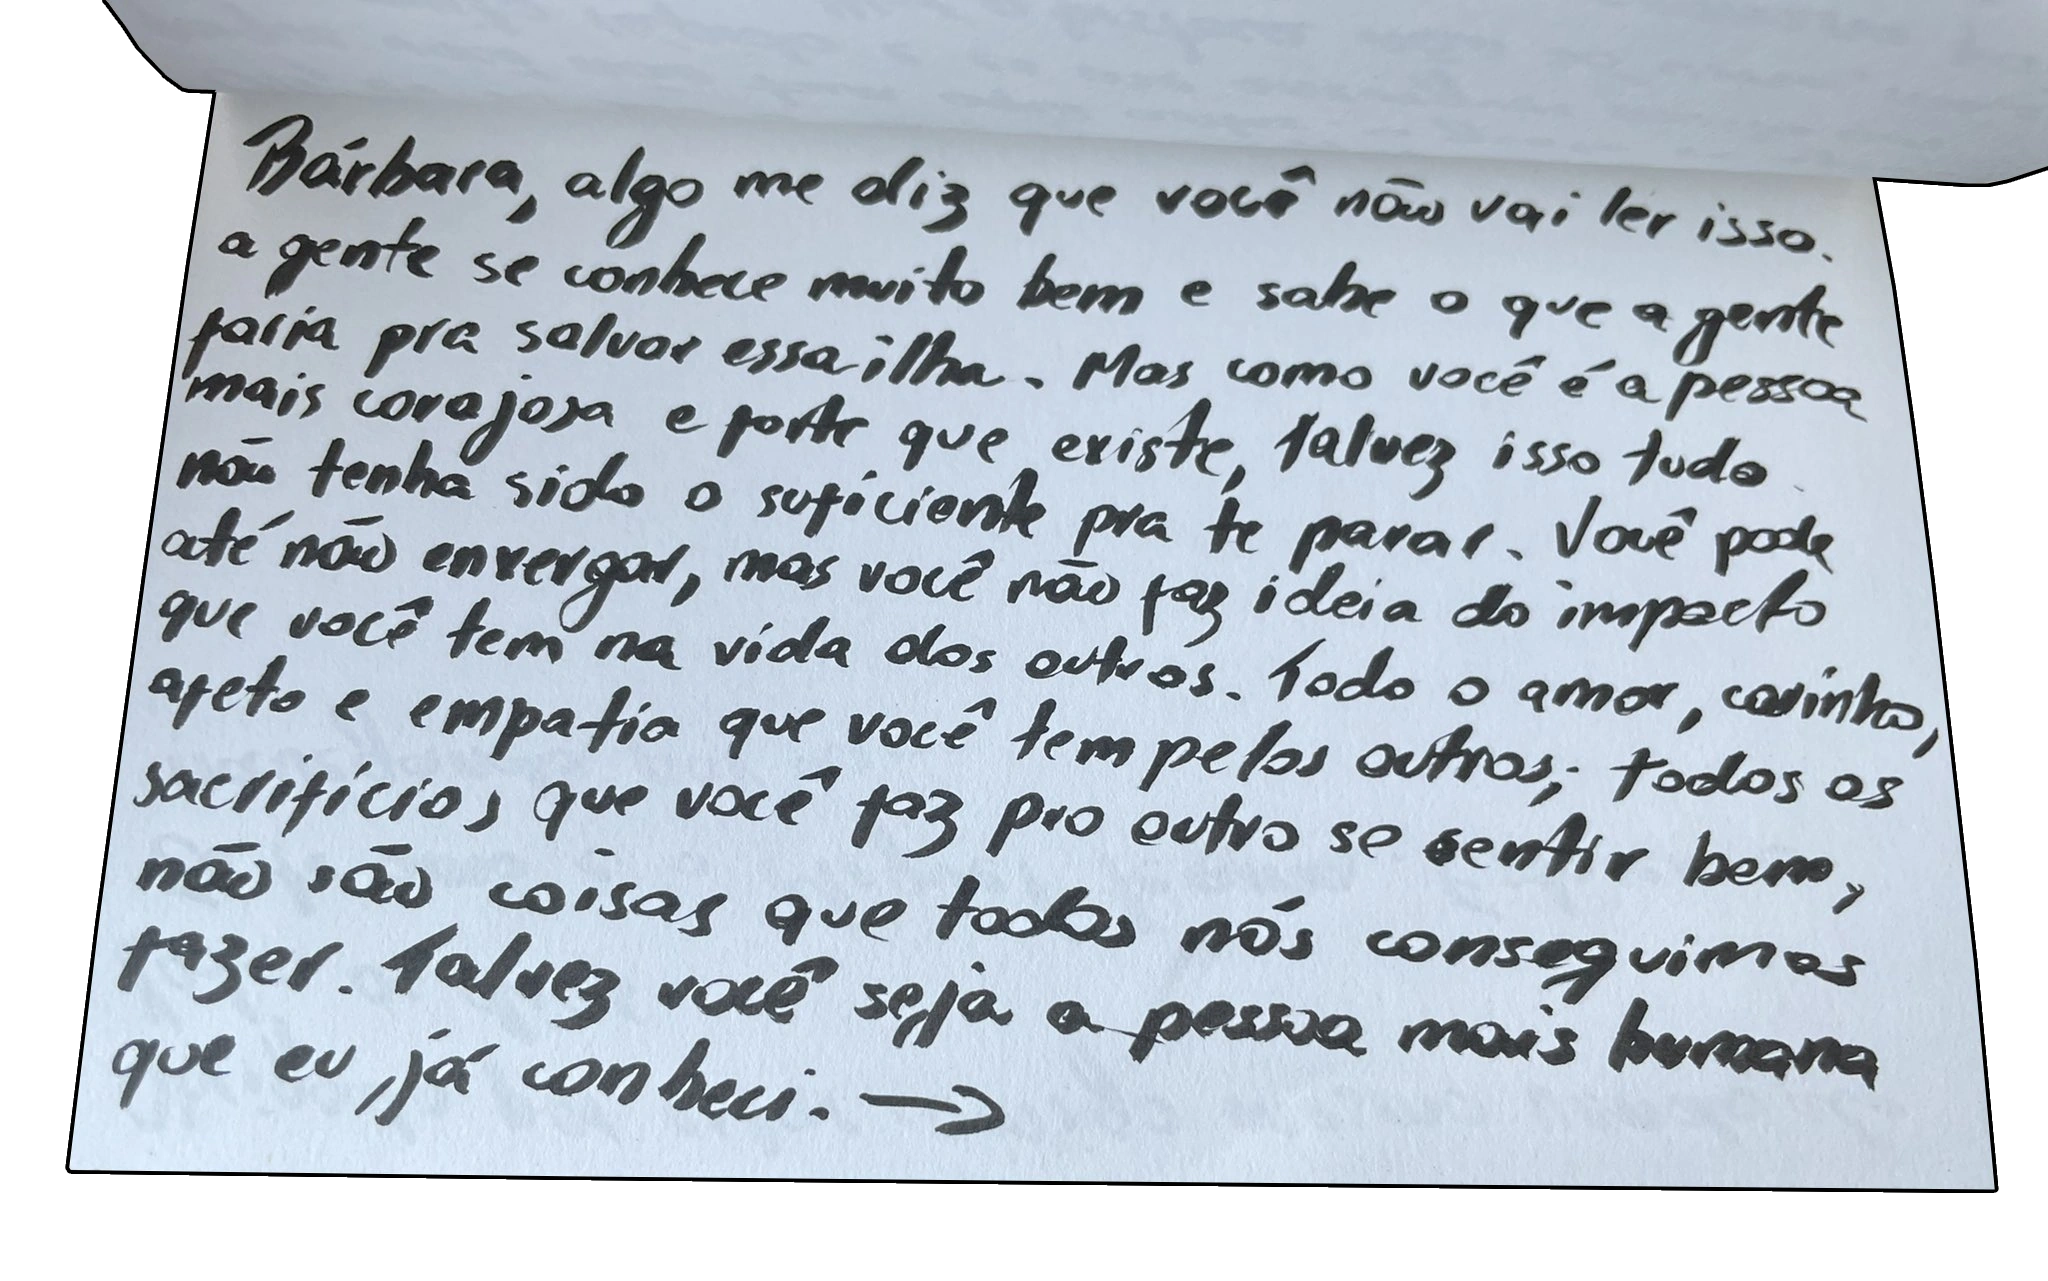 Bárbara, algo me diz que você não vai ler isso.
a gente se conhece muito bem e sabe o que a gente
faria pra salvar essa ilha. Mas como você é a pessoa
mais corajosa e forte que existe, talvez isso tudo
não tenha sido o suficiente pra te parar. Você pode
até não enxergar, mas você não faz ideia do impacto
que você tem na vida dos outros. Todo o amor, carinho,
afeto e empatia que você tem pelos outros; todos os
sacrifícios que você faz pro outro se sentir bem,
não são coisas que todos nós conseguimos
fazer. Talvez você seja a pessoa mais humana
que eu já conheci. →